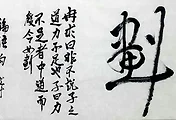 劃
冉求曰非不說子之
道力不足也子曰力
不足者中道而
廢今女劃
論語句